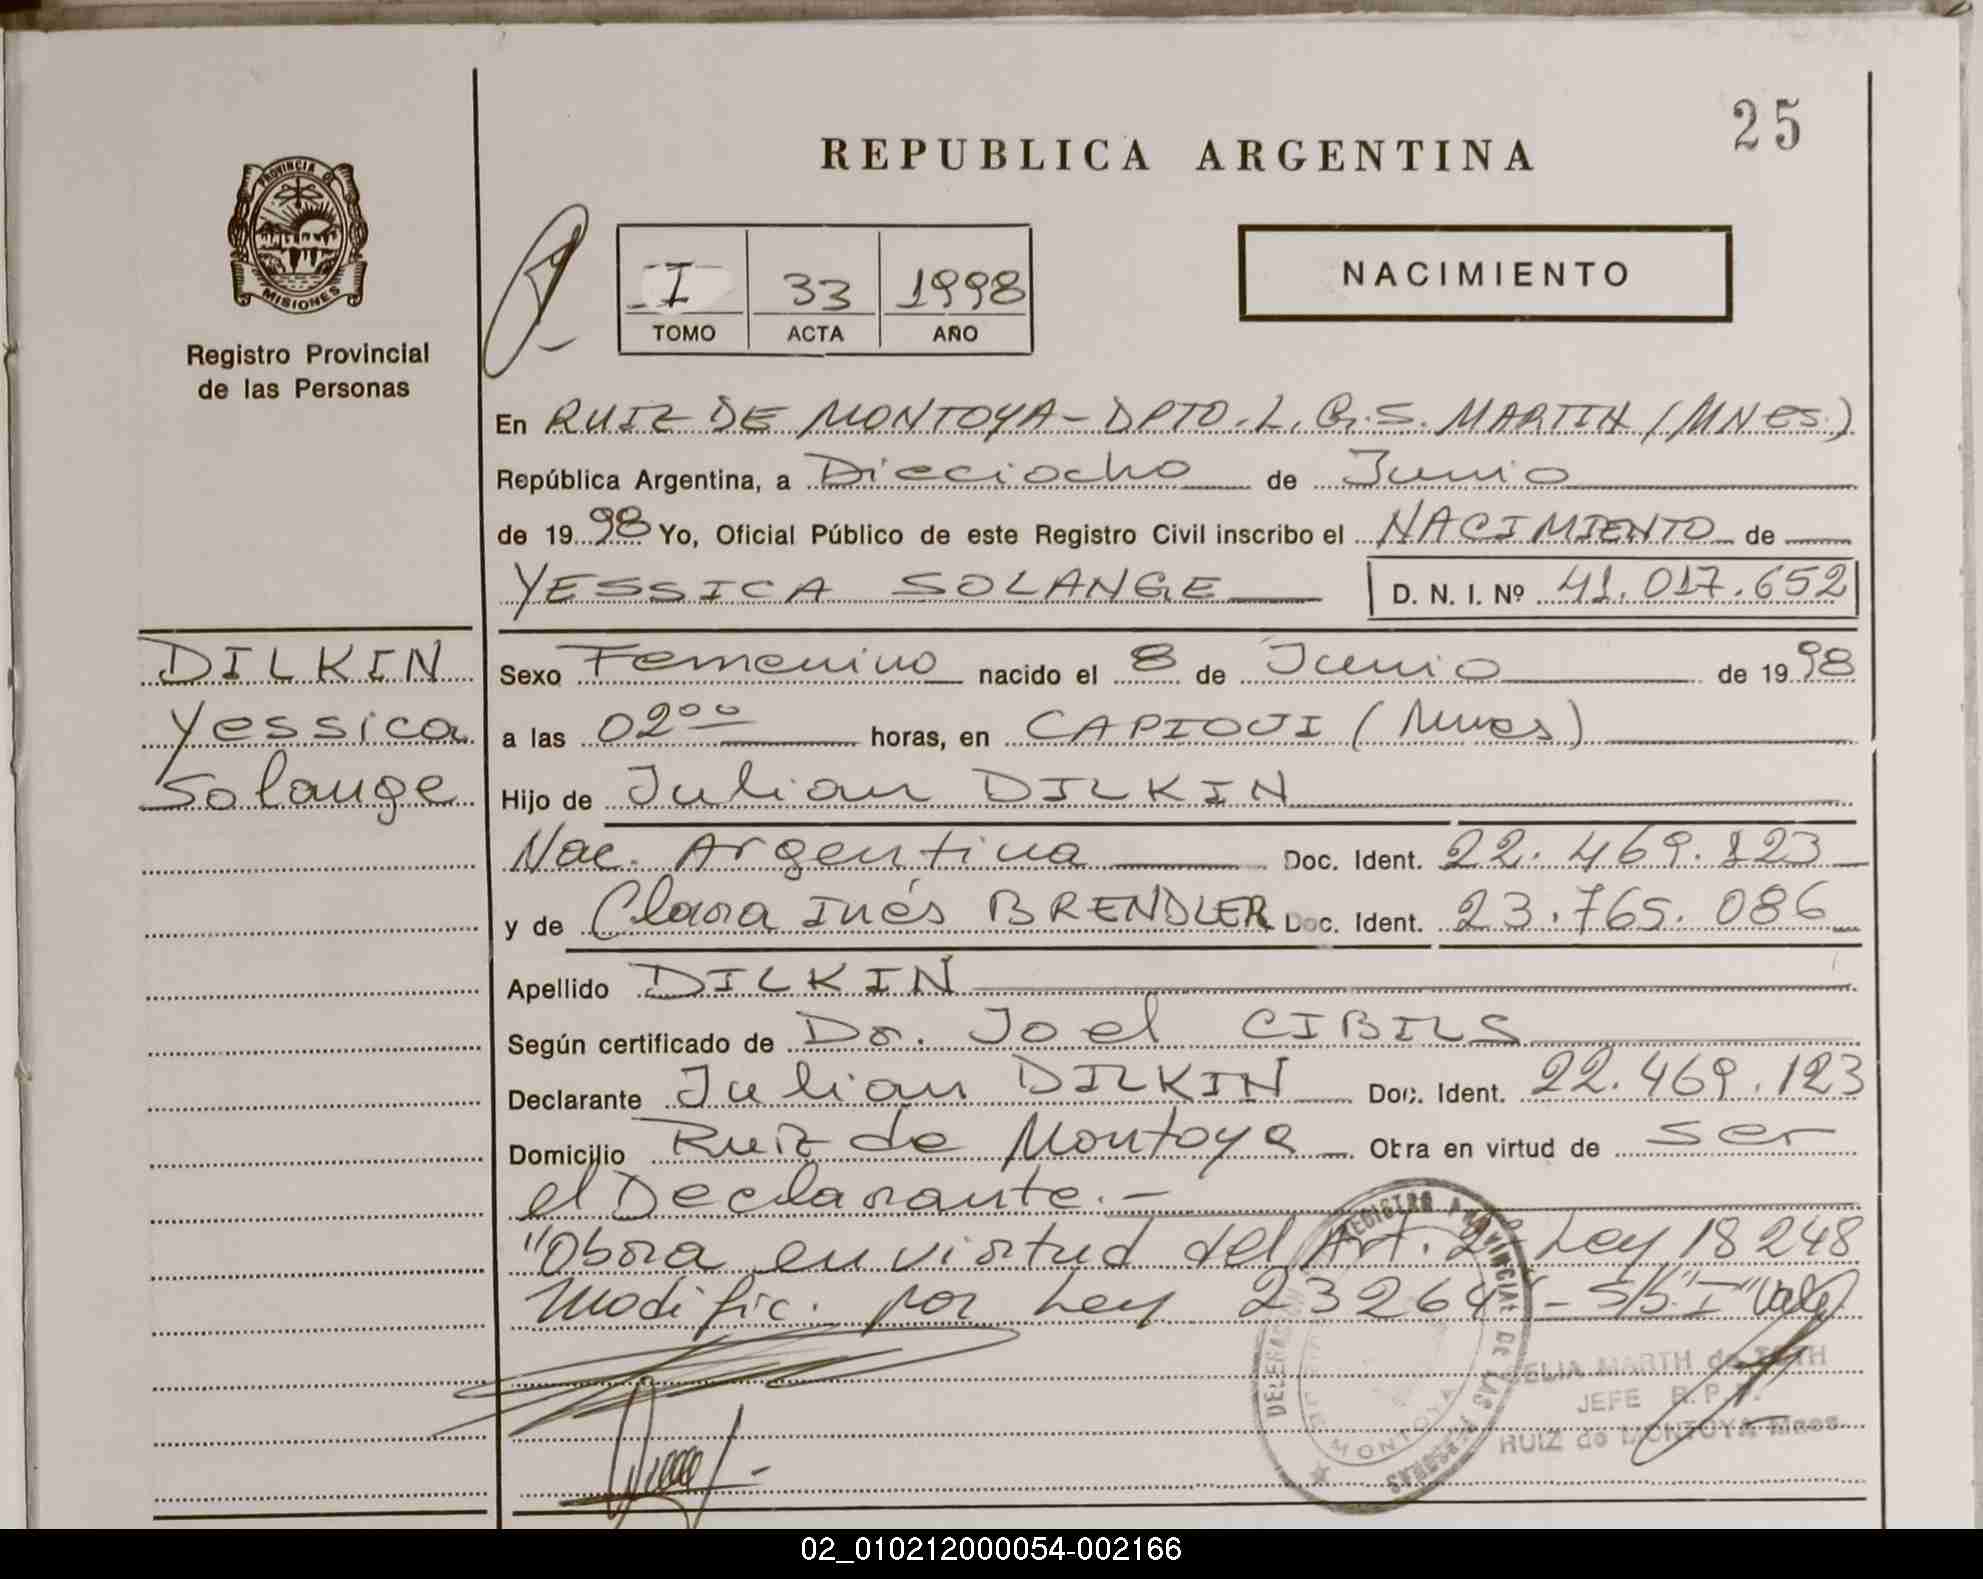 25
REPUBLICA ARGENTINA
PROVINCIA DE
MISIONES
Registro Provincial
de las Personas
I 33 1998
TOMO ACTA AÑO
NACIMIENTO
En RUIZ DE MONTOYA - DPTO. L. G. S. MARTIN (MNES.)
República Argentina, a Dieciocho de Junio
de 1998 Yo, Oficial Público de este Registro Civil inscribo el NACIMIENTO de
YESSICA SOLANGE D. N. I. Nº 41.017.652
DILKIN
Yessica
Solange
Sexo Femenino nacido el 8 de Junio de 1998
a las 02⁰⁰ horas, en CAPIOVI (Mnes)
Hijo de Julian DILKIN
Nac. Argentina Doc. Ident. 22.469.123
y de Clara Inés BRENDLER Doc. Ident. 23.765.086
Apellido DILKIN
Según certificado de Dr. Joel CIBILS
Declarante Julian DILKIN Doc. Ident. 22.469.123
Domicilio Ruiz de Montoya Obra en virtud de ser
el Declarante.-
"Obra en virtud del Art. 2º Ley 18248
Modific. por Ley 23264 - S/B "I" Vale
REGISTRO PROVINCIAL DE LAS PERSONAS
DELEGACION
MONTOYA
CELIA MARTH de TOTH
JEFE R. P. P.
RUIZ de MONTOYA Mnes
02_010212000054-002166